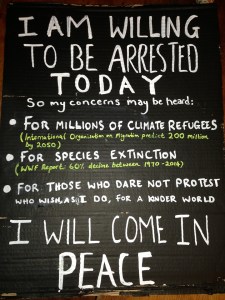 I AM WILLING
TO BE ARRESTED
TODAY
So my concerns may be heard:
• FOR MILLIONS OF CLIMATE REFUGEES
(International Organisation on Migration predict 200 million
by 2050)
• FOR SPECIES EXTINCTION
(WWF Report: 60% decline between 1970-2014)
• FOR THOSE WHO DARE NOT PROTEST
WHO WISH, AS I DO, FOR A KINDER WORLD
I WILL COME IN
PEACE